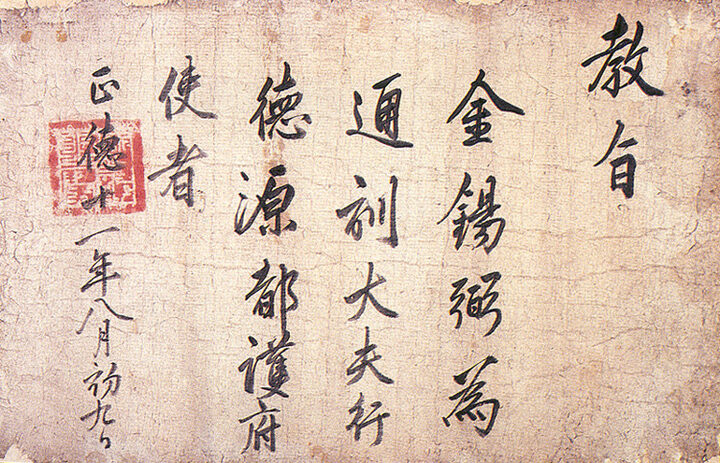 教旨
金錫弼為
通訓大夫行
德源都護府
使者
正德十一年八月初九日